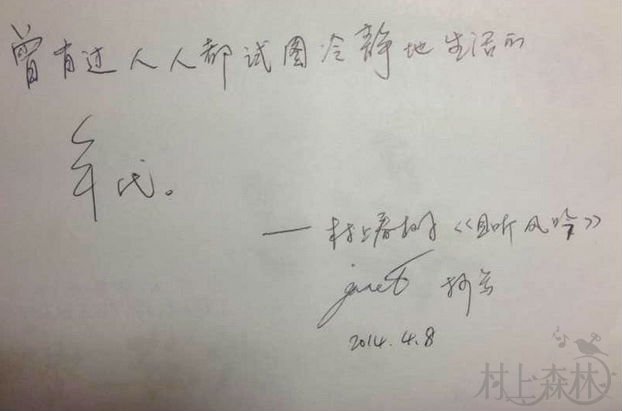 曾有过人人都试图冷静地生活的
年代。
—村上春树《且听风吟》
janet 抄写
2014.4.8
村上森林